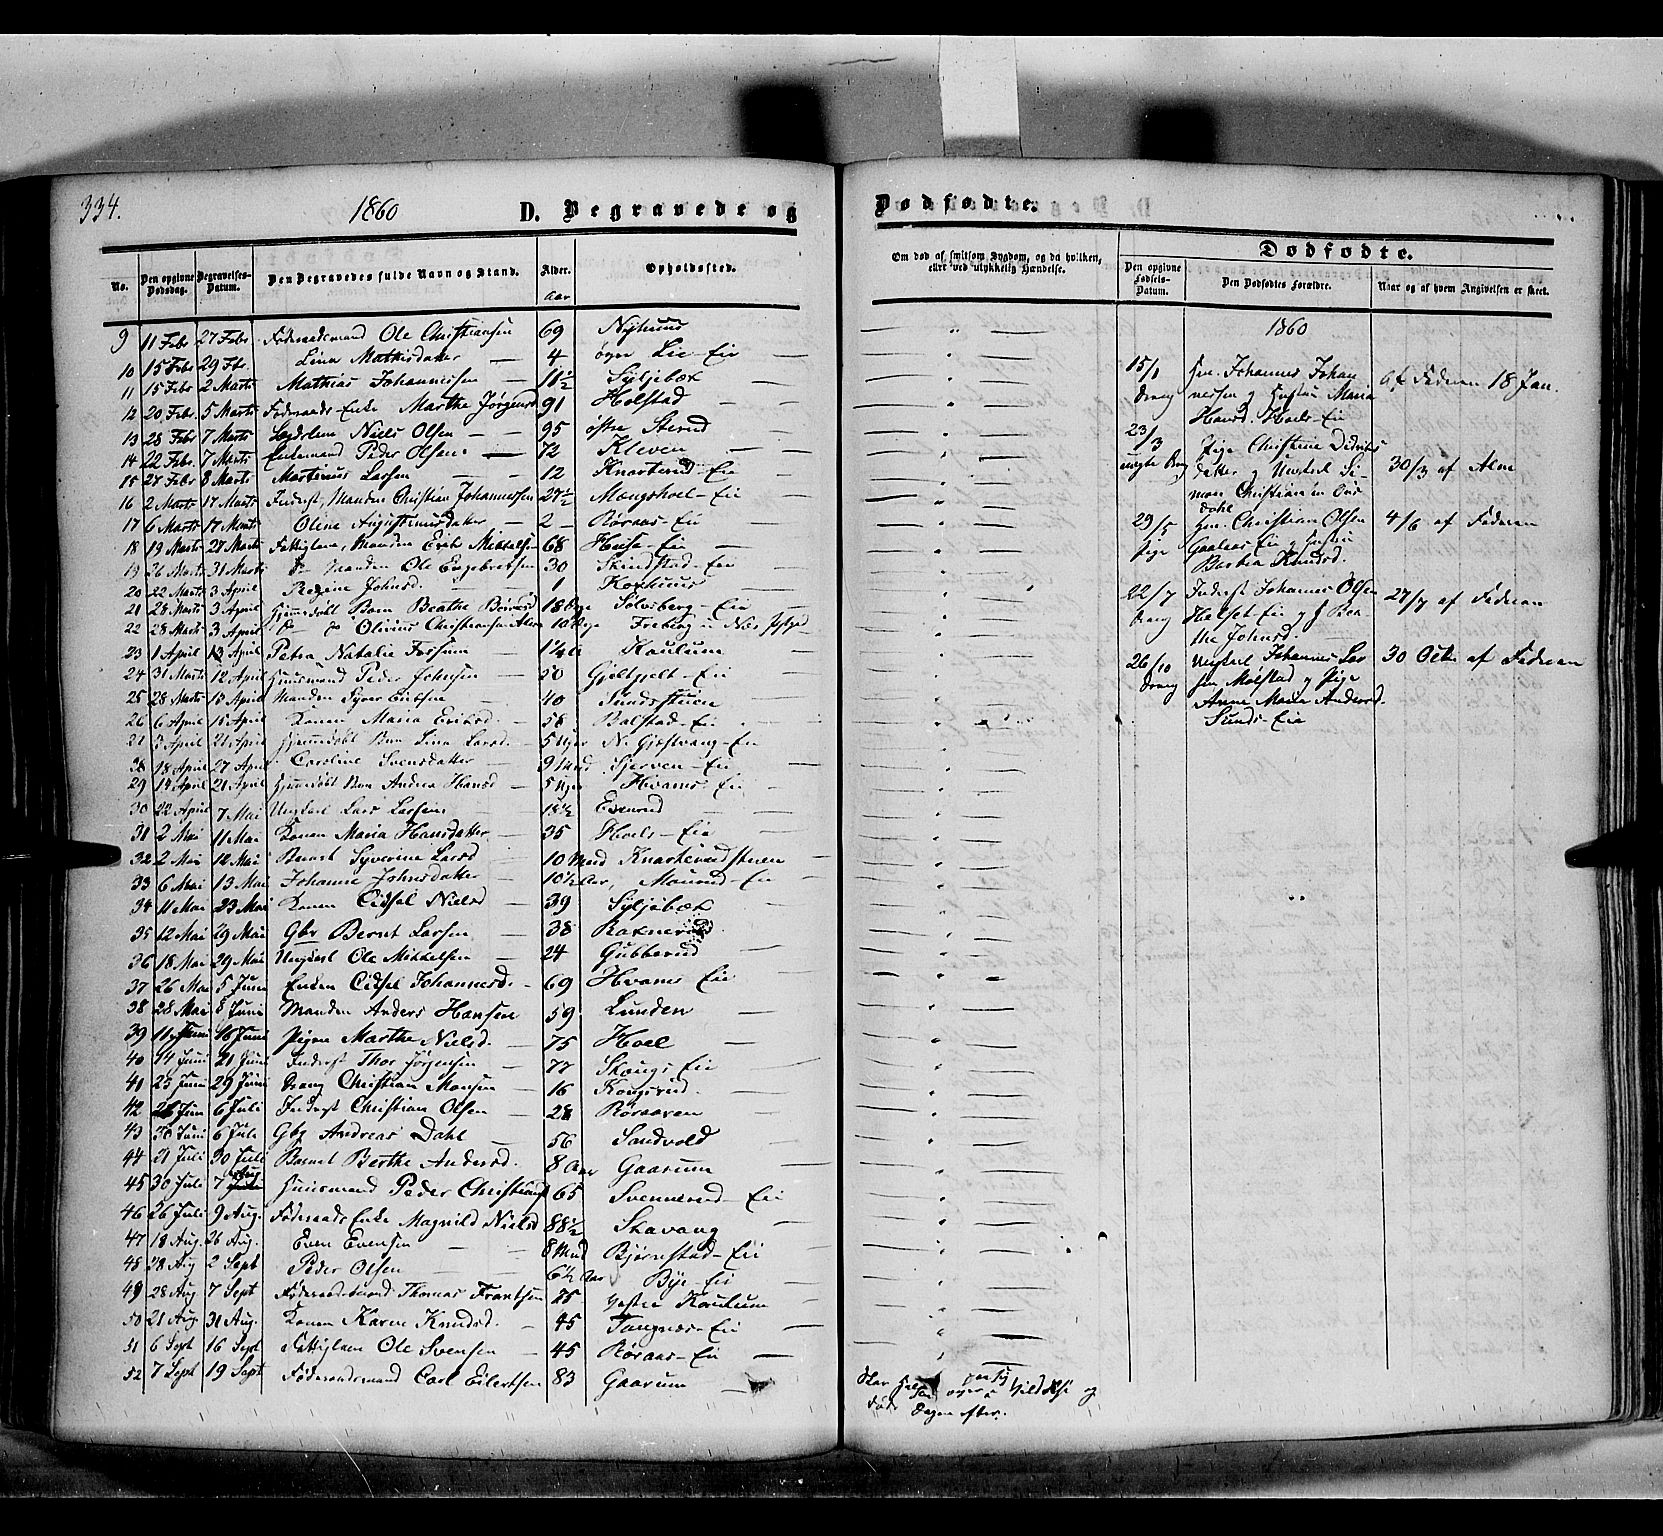 334.
1860
D. Begravede og
No.
Den opgivne Dødsdag.
Begravelses-Datum.
Den Begravedes fulde Navn og Stand.
Alder.
Aar
Opholdssted.
9 11 Febr 27 Febr Føderaadsmand Ole Christiansen 69 Nyhuus
10 15 Febr 29 Fbr. Lina Mathisdatter — 4 øvre Lie-Eie —
11 15 Febr 2 Marts Mathias Johannessen — 11½ Syljebæk —
12 20 Febr. 5 Marts Føderaads-Enke Marthe Jørgensd 91 Holstad —
13 28 Febr 7 Marts Niels Olsen — 95 østre Sterud
14 22 Febr. 7 Marts Enkemand Peder Olsen — 72 Kleven —
15 27 Febr 8 Marts Martinus Larsen — 12 Knarterud-Eie
16 2 Marts 17 Marts Inderst, Manden Christian Johannessen 27½ Mængshoel-Eie
17 6 Marts 17 Marts Oline Augustinusdatter — 2 — Røraas-Eie
18 19 Marts 27 Marts Fattiglem, Manden Erik Mikkelsen 68 Eie —
19 26 Marts 31 Marts Manden Ole Engebretsen 30 Skindstad-Eie
20 22 Marts 3 April Regine Johnsd. 1
21 28 Marts 3 April Hjemmedøbt Barn Beathe 18 Dge Sølvsberg-Eie
22 28 Marts 3 April Olivius Christiansen 10 Dge Freberg i Næs
23 1 April 13 April Petra Natalie Fossum — Kaulum —
24 31 Marts 12 April Huusmand Peder Johnsen — 50 Gjeltjelt-Eie
25 28 Marts 13 April Manden Syver Eriksen 40
26 6 April 15 April Konen Maria Eriksd. — 58 Balstad-Eie —
27 3 April 21 April Hjemmedøbt Barn Lina Larsd. 5 Uger N. Gjestvang-Eie
28 18 April 27 April Caroline Svensdatter — 9 Mnd Sjerven-Eie
29 14 April 21 April Hjemmedøbt Barn Andrea Hansd 5 Uger Hvams-Eie
30 22 April 7 Mai Ungkarl Lars Larsen
31 2 Mai 11 Mai Konen Maria Hansdatter — 35 Hoels-Eie
32 2 Mai 12 Mai Barnet Syverine Larsd — 10 Mnd Knarterudstuen —
33 6 Mai 13 Mai Johanne Johnsdatter — 10½ Aar, Maurud-Eie —
34 11 Mai 23 Mai Konen Eidsel Nielsd — 39 Syljebæk —
35 12 Mai 29 Mai Gbr Bernt Larsen — 38
36 18 Mai 29 Mai Ungkarl Ole Mikkelsen — 24 Gubberud —
37 26 Mai 5 Juni Enken Eidsel Johannesd. — 69 Hvams Eie —
38 28 Mai 8 Juni Manden Anders Hansen 59 Lunden —
39 11 Juni 16 Juni Pigen Marthe Nielsd. — 75 Hoel —
40 14 Juni 21 Juni Inderst Thor Jørgensen — 77 Skougs Eie —
41 25 Juni 29 Juni Dreng Christian Monsen — 16 Kongsrud. —
42 28 Juni 6 Juli Inderst Christian Olsen — 28 Røraaren —
43 30 Juni 6 Juli Gbr Andreas Dahl — 56 Sandvold —
44 21 Juli 30 Juli Barnet Berthe Andersd. 8 Aar Gaarum —
45 30 Juli 7 Aug Huusmand Peder Christians 65 Svennerud-Eie
46 26 Juli 9 Aug. Føderaads Enke Magnild Nielsd 88½ Skavang —
47 18 Aug. 26 Aug. Even Evensen — 8 Mnd Bjørnstad-Eie
48 28 Aug 2 Sept Peder Olsen — 6½ Aar Bye-Eie —
49 28 Aug 7 Sept Føderaadsmand Thomas Frantsen 75 Vestre Kaulum
50 21 Aug 31 Aug. Konen Karen Knudsd. — 45 Tangnæs-Eie —
51 6 Sept 16 Sept Fattiglem Ole Svensen — 45 Røraas-Eie —
52 7 Sept 19 Sept Føderaadsmand Carl Eilertsen 83 Gaarum —
Dødfødte.
Om død af smitsom Sygdom, og da hvilken,
eller ved ulykkelig Hændelse.
Dødfødte.
Den opgivne Fødsels-Datum.
Den Dødfødtes Forældre.
Naar og af hvem Angivelsen er skeet.
1860
15/1 Hm. Johannes Johan
Dreng nessen og Hustru Maria
Hansd. Hoels Eie
af Faderen 18 Jan.
23/3 Pige Christine Didriks
uægte Dreng datter og Ungkarl Si-
mon Christiansen
30/3 af
29/5 Hm. Christian Olsen 4/6 af Faderen
Pige Gaalaas Eie og Hustru
Barbra Knudsd.
22/7 Inderst Johannes Olsen 27/7 af Faderen
Dreng Halset Eie og H Bea-
the Johnsd.
26/10 Ungkarl Johannes Lar- 30 Octbr af Faderen
Dreng sen Malstad og Pige
Anne Maria Andersd.
Sunds-Eie
Dagen efter.